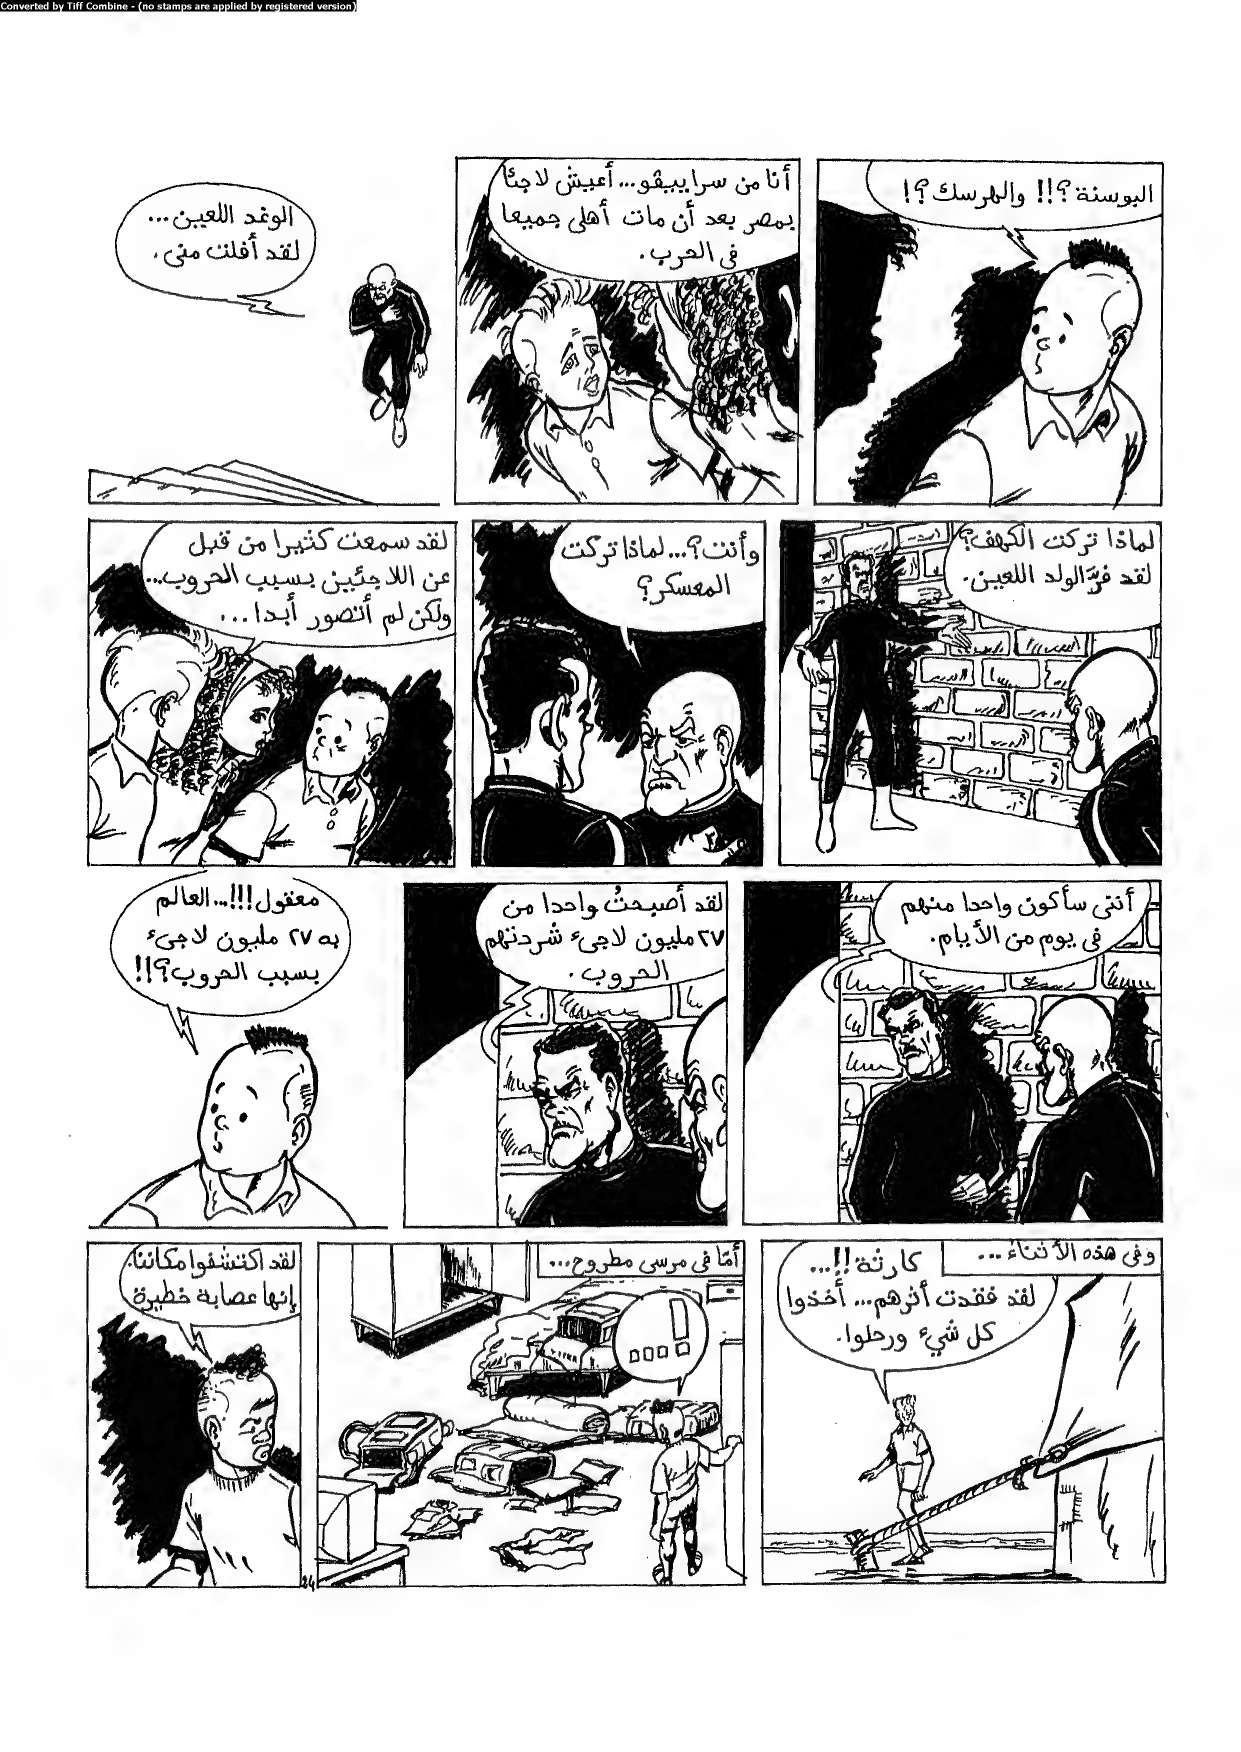 Converted by Tiff Combine - (no stamps are applied by registered version)
البوسنة؟!! والهرسك؟!
أنا من سراييڤو... أعيش لاجئا
بمصر بعد أن مات أهلى جميعا
فى الحرب.
الوغد اللعين...
لقد أفلت منى.
لماذا تركت الكهف؟
لقد فرَّ الولد اللعين.
وأنت؟... لماذا تركت
المعسكر؟
لقد سمعت كثيرا من قبل
عن اللاجئين بسبب الحروب...
ولكن لم أتصور أبدا...
أننى سأكون واحدا منهم
فى يوم من الأيام.
لقد أصبحتُ واحدا من
٢٧ مليون لاجىء شردتهم
الحروب.
معقول!!!... العالم
به ٢٧ مليون لاجىء
بسبب الحروب؟!!
وفى هذه الأثناء...
كارثة!!...
لقد فقدت أثرهم... أخذوا
كل شيء ورحلوا.
أمّا فى مرسى مطروح...
!....
لقد اكتشفوا مكاننا.
إنها عصابة خطيرة
24